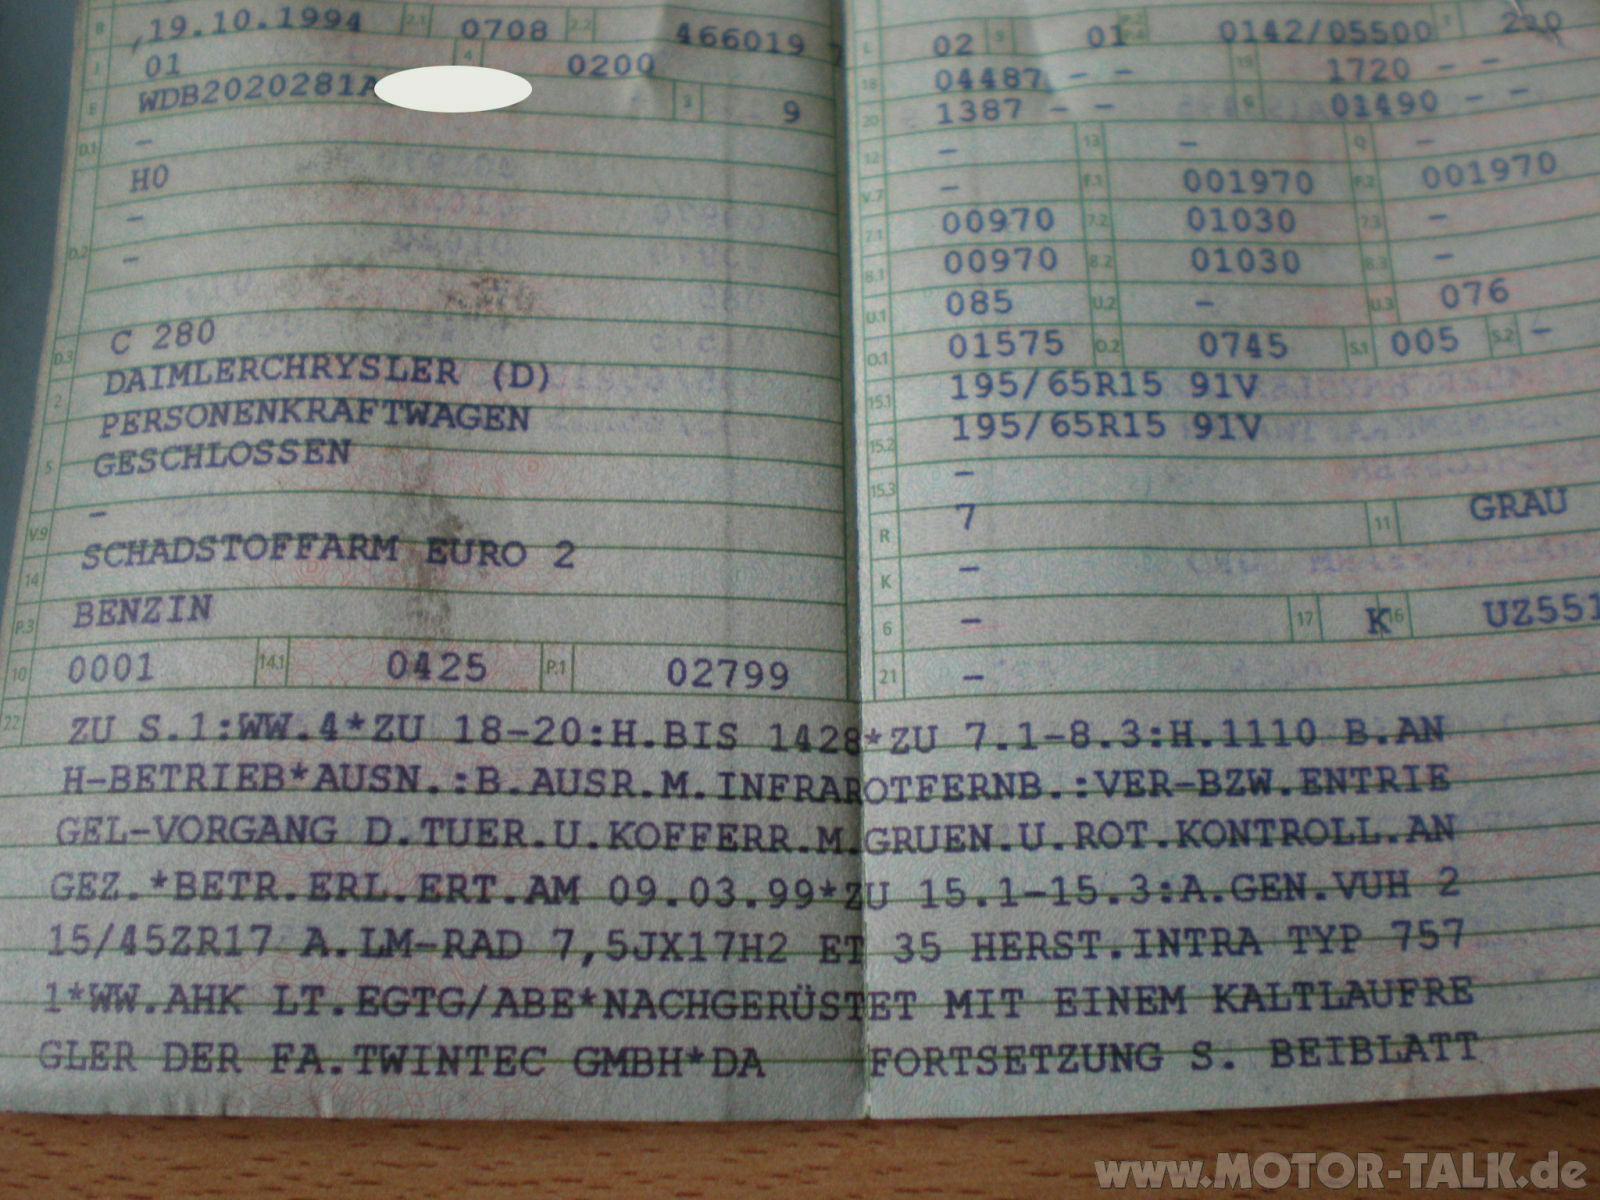 B ,19.10.1994 2.1 0708 2.2 466019 7 L 02 9 01 P.2 P.4 0142/05500 T 230
J 01 4 0200 18 04487 - - 19 1720 - -
E WDB2020281A 3 9 20 1387 - - G 01490 - -
D.1 - 12 - 13 - Q -
H0 V.7 - F.1 001970 F.2 001970
- 7.1 00970 7.2 01030 7.3 -
D.2 - 8.1 00970 8.2 01030 8.3 -
U.1 085 U.2 - U.3 076
D.3 C 280 O.1 01575 O.2 0745 S.1 005 S.2 -
2 DAIMLERCHRYSLER (D) 15.1 195/65R15 91V
PERSONENKRAFTWAGEN 15.2 195/65R15 91V
5 GESCHLOSSEN 15.3 -
V.9 - R 7 11 GRAU
14 SCHADSTOFFARM EURO 2 K -
P.3 BENZIN 6 - 17 K 16 UZ551
10 0001 14.1 0425 P.1 02799 21 -
22 ZU S.1:WW.4*ZU 18-20:H.BIS 1428*ZU 7.1-8.3:H.1110 B.AN
H-BETRIEB*AUSN.:B.AUSR.M.INFRAROTFERNB.:VER-BZW.ENTRIE
GEL-VORGANG D.TUER.U.KOFFERR.M.GRUEN.U.ROT.KONTROLL.AN
GEZ.*BETR.ERL.ERT.AM 09.03.99*ZU 15.1-15.3:A.GEN.VUH 2
15/45ZR17 A.LM-RAD 7,5JX17H2 ET 35 HERST.INTRA TYP 757
1*WW.AHK LT.EGTG/ABE*NACHGERÜSTET MIT EINEM KALTLAUFRE
GLER DER FA.TWINTEC GMBH*DA FORTSETZUNG S. BEIBLATT
www.MOTOR-TALK.de